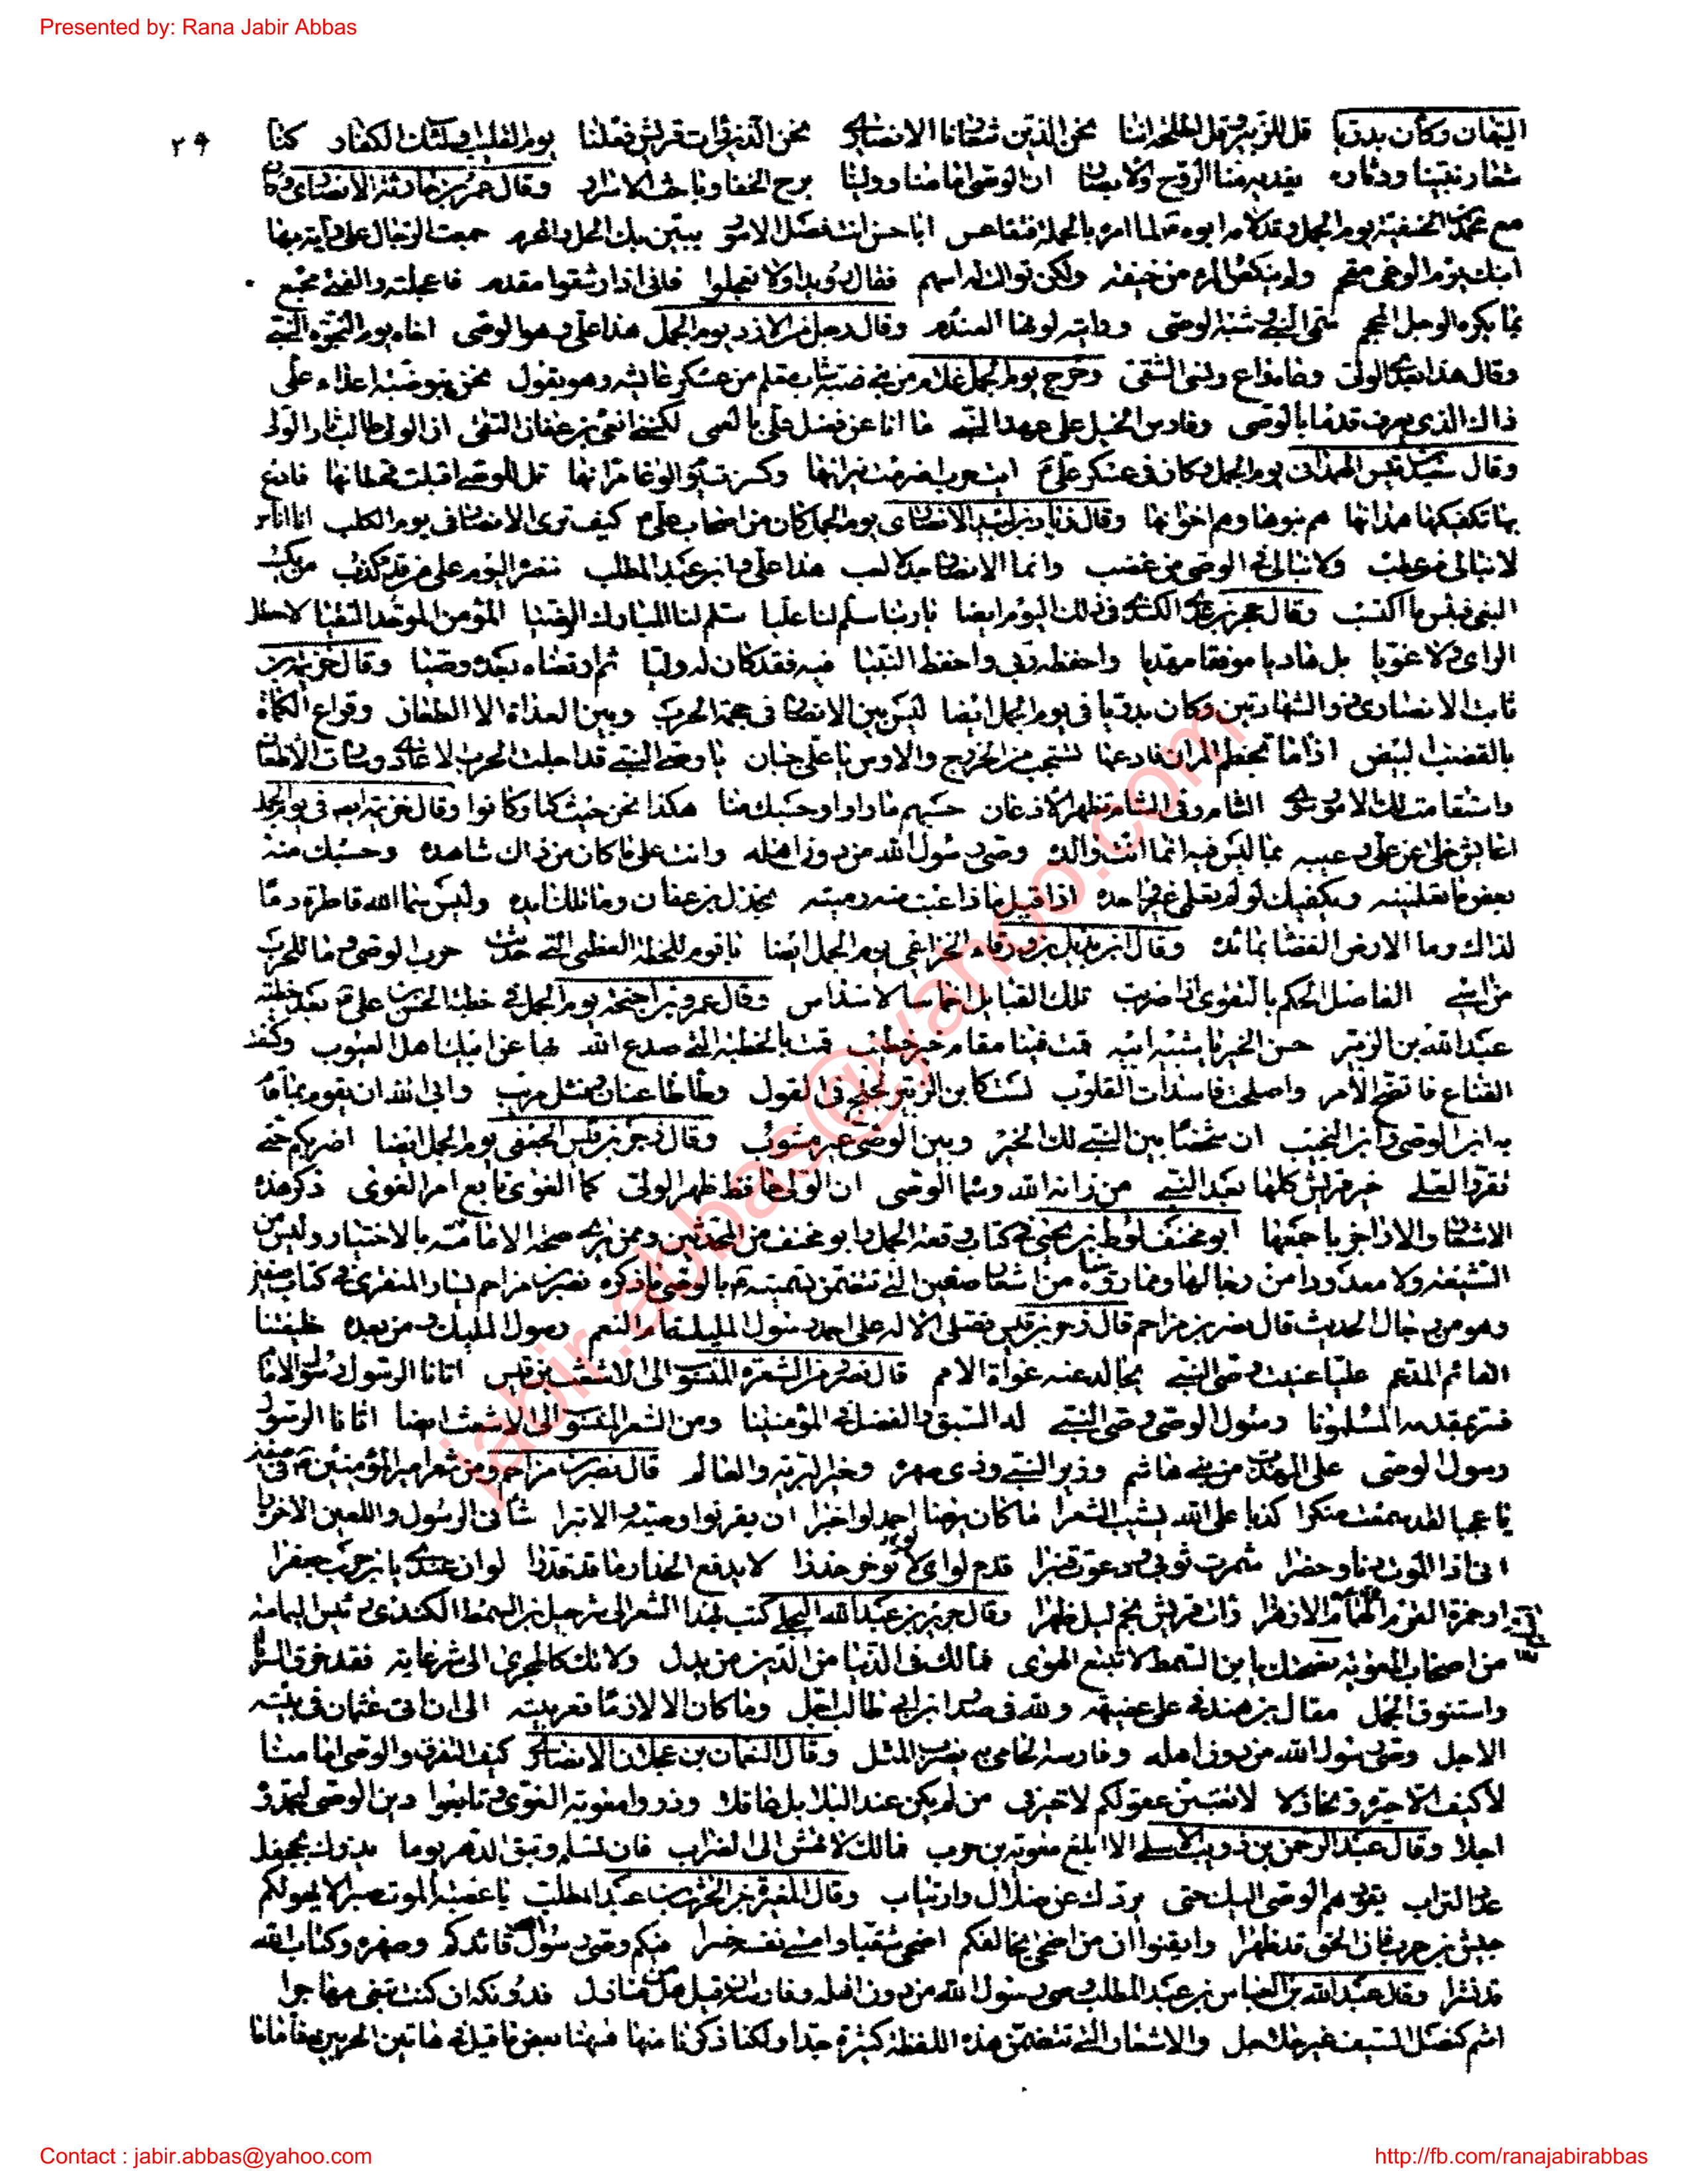 Presented by: Rana Jabir Abbas
٢٩
التيهان وكان بدريا قل للزبير وقل لطلحة اننا نحن الذين شعارنا الانصار نحن الذين رأت قريش فعلنا يوم القليب اولئك الكفار كنا
شعار نبينا ودثاره يفديه منا الروح والابصار ان الوصي امامنا وولينا برح الخفاء وباحت الاسرار وقال عمر بن حارثة الانصاري وكان
مع محمد بن الحنفية يوم الجمل وقد لامه ابوه لما امره بالحملة فتقاعس ابا حسن انت فصل الامور يبين بك الحل والمحرم جمعت الرجال على راية بها
ابنك يوم الوغى مقحم ولم ينكص المرء من خيفة ولكن توالت له اسهم فقال رويدا ولا تعجلوا فاني اذا رشقوا مقدم فاعجلته والفتى مجمع
بما يكره الوجل المحجم سمي النبي وشبه الوصي ورايته لونها العندم وقال رجل من الازد يوم الجمل هذا علي وهو الوصي اخاه يوم النجوة النبي
وقال هذا بعدي الولي وعاه واع ونسي الشقي وخرج يوم الجمل غلام من بني ضبة شاب معلم من عسكر عايشه وهو يقول نحن بنو ضبة اعداء علي
ذاك الذي يعرف قدما بالوصي وفارس الخيل على عهد النبي ما انا عن فضل علي بالعمي لكنني انعى بن عفان التقي ان الولي طالب ثار الولي
وقال سعيد بن قيس الهمداني يوم الجمل وكان في عسكر علي ع اية حرب اضرمت نيرانها وكسرت يوم الوغا مرانها قل للوصي اقبلت قحطانها فادع
بها تكفيكها همدانها هم بنوها وهم اخوانها وقال زياد بن لبيد الانصاري يوم الجمل وكان من اصحاب علي ع كيف ترى الانصار في يوم الكلب انا اناس
لا نبالي من عطب ولا نبالي في الوصي من غضب وانما الانصار جد لا لعب هذا علي وابن عبد المطلب ننصره اليوم على من قد كذب من يكسب
البغي فبئس ما اكتسب وقال حجر بن عدي الكندي في ذلك اليوم ايضا يا ربنا سلم لنا عليا سلم لنا المبارك المضيا المؤمن الموحد التقيا لا خطل
الراي ولا غويا بل هاديا موفقا مهديا واحفظه ربي واحفظ النبيا فيه فقد كان له وليا ثم ارتضاه بعده وصيا وقال خزيمة بن
ثابت الانصاري ذو الشهادتين وكان بدريا في يوم الجمل ايضا ليس بين الانصار في حجمة الحرب وبين العداة الا الطعان وقراع الكماة
بالقضب البيض اذا ما تحطم المران فادعها تستجب من الخزرج والاوس يا علي جبان يا وصي النبي قد اجلت الحرب الاعادي وسارت الاظعان
واستقامت لك الامور سوى الشام وفي الشام تظهر الاذعان حسبهم ما راوا وحسبك منا هكذا نحن حيث كنا وكانوا وقال خزيمة ايضا في يوم الجمل
اعايش خلي عن علي وعيبه بما ليس فيه انما انت والده وصي رسول الله من دون اهله وانت على ما كان من ذاك شاهده وحسبك منه
بعض ما تعلمينه ويكفيك لو لم تعلمي غير واحده اذا قيل ماذا عبت منه رميته بخذل بن عفان وما تلك آبده وليس سماء الله قاطرة دما
لذاك وما الارض الفضاء بمائده وقال ابن بديل بن ورقاء الخزاعي يوم الجمل ايضا يا قوم للخطة العظمى التي حدثت حرب الوصي وما للحرب
من اسي الفاصل الحكم بالتقوى اذا ضربت تلك القبايل اخماسا لاسداس وقال عمرو بن احيحة يوم الجمل في خطبة الحسن بن علي ع بعد خطبة
عبد الله بن الزبير حسن الخير يا شبيه ابيه قمت فينا مقام خير خطيب قمت بالخطبة التي صدع الله بها عن ابيك اهل العيوب وكشفت
القناع فاتضح الامر واصلحت فاسدات القلوب لست كابن الزبير لجلج في القول وطاطا عنان فسل مريب وابى الله ان يقوم بما قام
به ابن الوصي وابن النجيب ان شخصا بين النبي لك الخير وبين الوصي غير مشوب وقال زحر بن قيس الجعفي يوم الجمل ايضا اضربكم حتى
تقروا لعلي خير قريش كلها بعد النبي من زانه الله وسماه الوصي ان الولي حافظ ظهر الولي كما الغوي تابع امر الغوي ذكر هذه
الاشعار والاراجيز باجمعها ابو مخنف لوط بن يحيى في كتاب وقعة الجمل وابو مخنف من المحدثين وممن يرى صحة الامامة بالاختيار وليس من
الشيعة ولا معدودا من رجالها ومما رويناه من اشعار صفين التي تتضمن تسميته ع بالوصي ما ذكره نصر بن مزاحم بن يسار المنقري في كتاب صفين
وهو من رجال الحديث قال نصر بن مزاحم قال زحر بن قيس فصلى الاله على احمد رسول المليك تمام النعم رسول المليك ومن بعده خليفتنا
القائم المدعم عليا عنيت وصي النبي يجالد عنه غواة الامم قال نصر ومن الشعر المنسوب الى الاشعث بن قيس اتانا الرسول رسول الامام
فسر بمقدمه المسلمونا رسول الوصي وصي النبي له السبق والفضل في المؤمنينا ومن الشعر المنسوب الى الاشعث ايضا اتانا الرسول
رسول الوصي علي المهذب من بني هاشم وزير النبي وذي صهره وخير البرية والعالم قال نصر بن مزاحم ومن شعر امير المؤمنين ع في صفين
يا عجبا لقد سمعت منكرا كذبا على الله يشيب الشعرا ما كان يرضى احمد لو اخبرا ان يقرنوا وصيه والابترا شاني الرسول واللعين الاخزرا
اني اذا الموت دنا وحضرا شمرت ثوبي ودعوت قنبرا قدم لوائي لا تؤخر حذرا لا يدفع الحذار ما قد قدرا لو ان عندي يا بن حرب جعفرا
او حمزة القرم الهمام الازهرا رات قريش نجم ليل ظهرا وقال جرير بن عبد الله البجلي كتب بهذا الشعر الى شرحبيل بن السمط الكندي رئيس اليمامة
من اصحاب المعوية نصحتك يا بن السمط لا تتبع الهوى فمالك في الدنيا من الدين من بدل ولا تك كالمجري الى شر غاية فقد خرق السربال
واستنوق الجمل مقال بن هند في علي عضيهة ولله في صدر ابن ابي طالب اجل وما كان الا لازما قعر بيته الى ان اتى عثمان في بيته
الاجل وصي رسول الله من دون اهله وفارسه الحامي به يضرب المثل وقال النعمان بن عجلان الانصاري كيف التفرق والوصي امامنا
لا كيف الا حيرة وتخاذلا لا تغبنن عقولكم لا خير في من لم يكن عند البلابل عاقلا وذروا معوية الغوي وتابعوا دين الوصي لتحمدوه
اجلا وقال عبد الرحمن بن ذويب الاسلمي الا ابلغ معوية بن حرب فمالك لا تهش الى الضراب فان تسلم وتبق الدهر يوما نزرك بجحفل
عدد التراب يقودهم الوصي اليك حتى يردك عن ضلال وارتياب وقال المغيرة بن الحرث بن عبد المطلب يا عصبة الموت صبرا لا يهولكم
جيش بن حرب فان الحق قد ظهرا وايقنوا ان من اضحى يخالفكم اضحى شقيا وامسى نفسه خسرا فيكم وصي رسول الله قائدكم وصهره وكتاب الله
قد نشرا وقال عبد الله بن العباس بن عبد المطلب وصي رسول الله من دون اهله وفارسه ان قيل هل من منازل فدونكه ان كنت تبغي مهاجرا
اشم كنصل السيف غير حلاحل والاشعار التي تتضمن هذه اللفظة كثيرة جدا ولكنا ذكرنا منها هيهنا بعض ما قيل في هاتين الحربين فاما ما
jabir.abbas@yahoo.com
Contact : jabir.abbas@yahoo.com
http://fb.com/ranajabirabbas